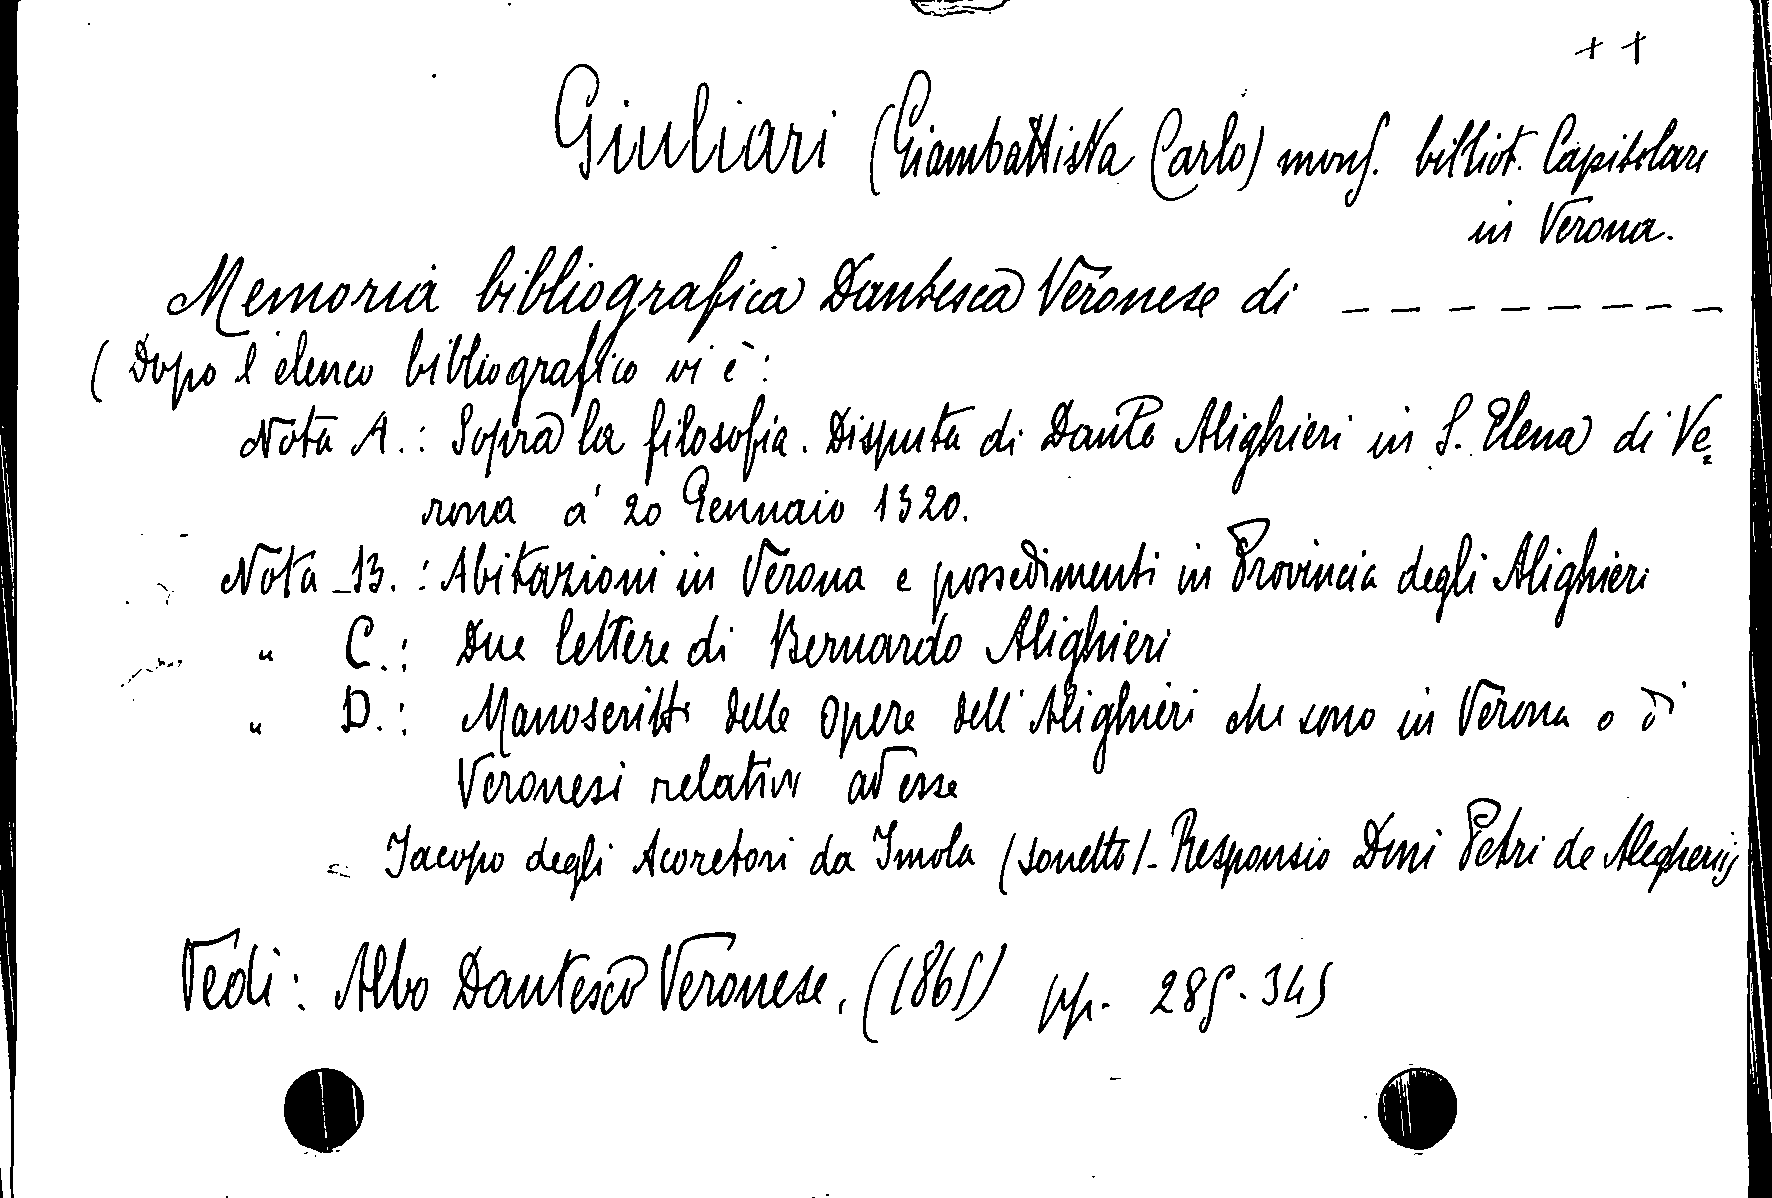 + +
Giuliari (Giambattista Carlo) mons. bibliot. Capitolare
in Verona.
Memoria bibliografica Dantesca Veronese di _ _ _ _ _ _ _ _
( Dopo l'elenco bibliografico vi è:
Nota A.: Sopra la filosofia. Disputa di Dante Alighieri in S. Elena di Ve=
rona a' 20 Gennaio 1320.
Nota B.: Abitazioni in Verona e possedimenti in Provincia degli Alighieri
" C.: Due lettere di Bernardo Alighieri
" D.: Manoscritti delle opere dell'Alighieri che sono in Verona o di
Veronesi relativi ad esse
= Jacopo degli Acoretori da Imola (sonetto)- Responsio Dmi Petri de Alegheriis
Vedi: Albo Dantesco Veronese, (1865) pp. 285-345